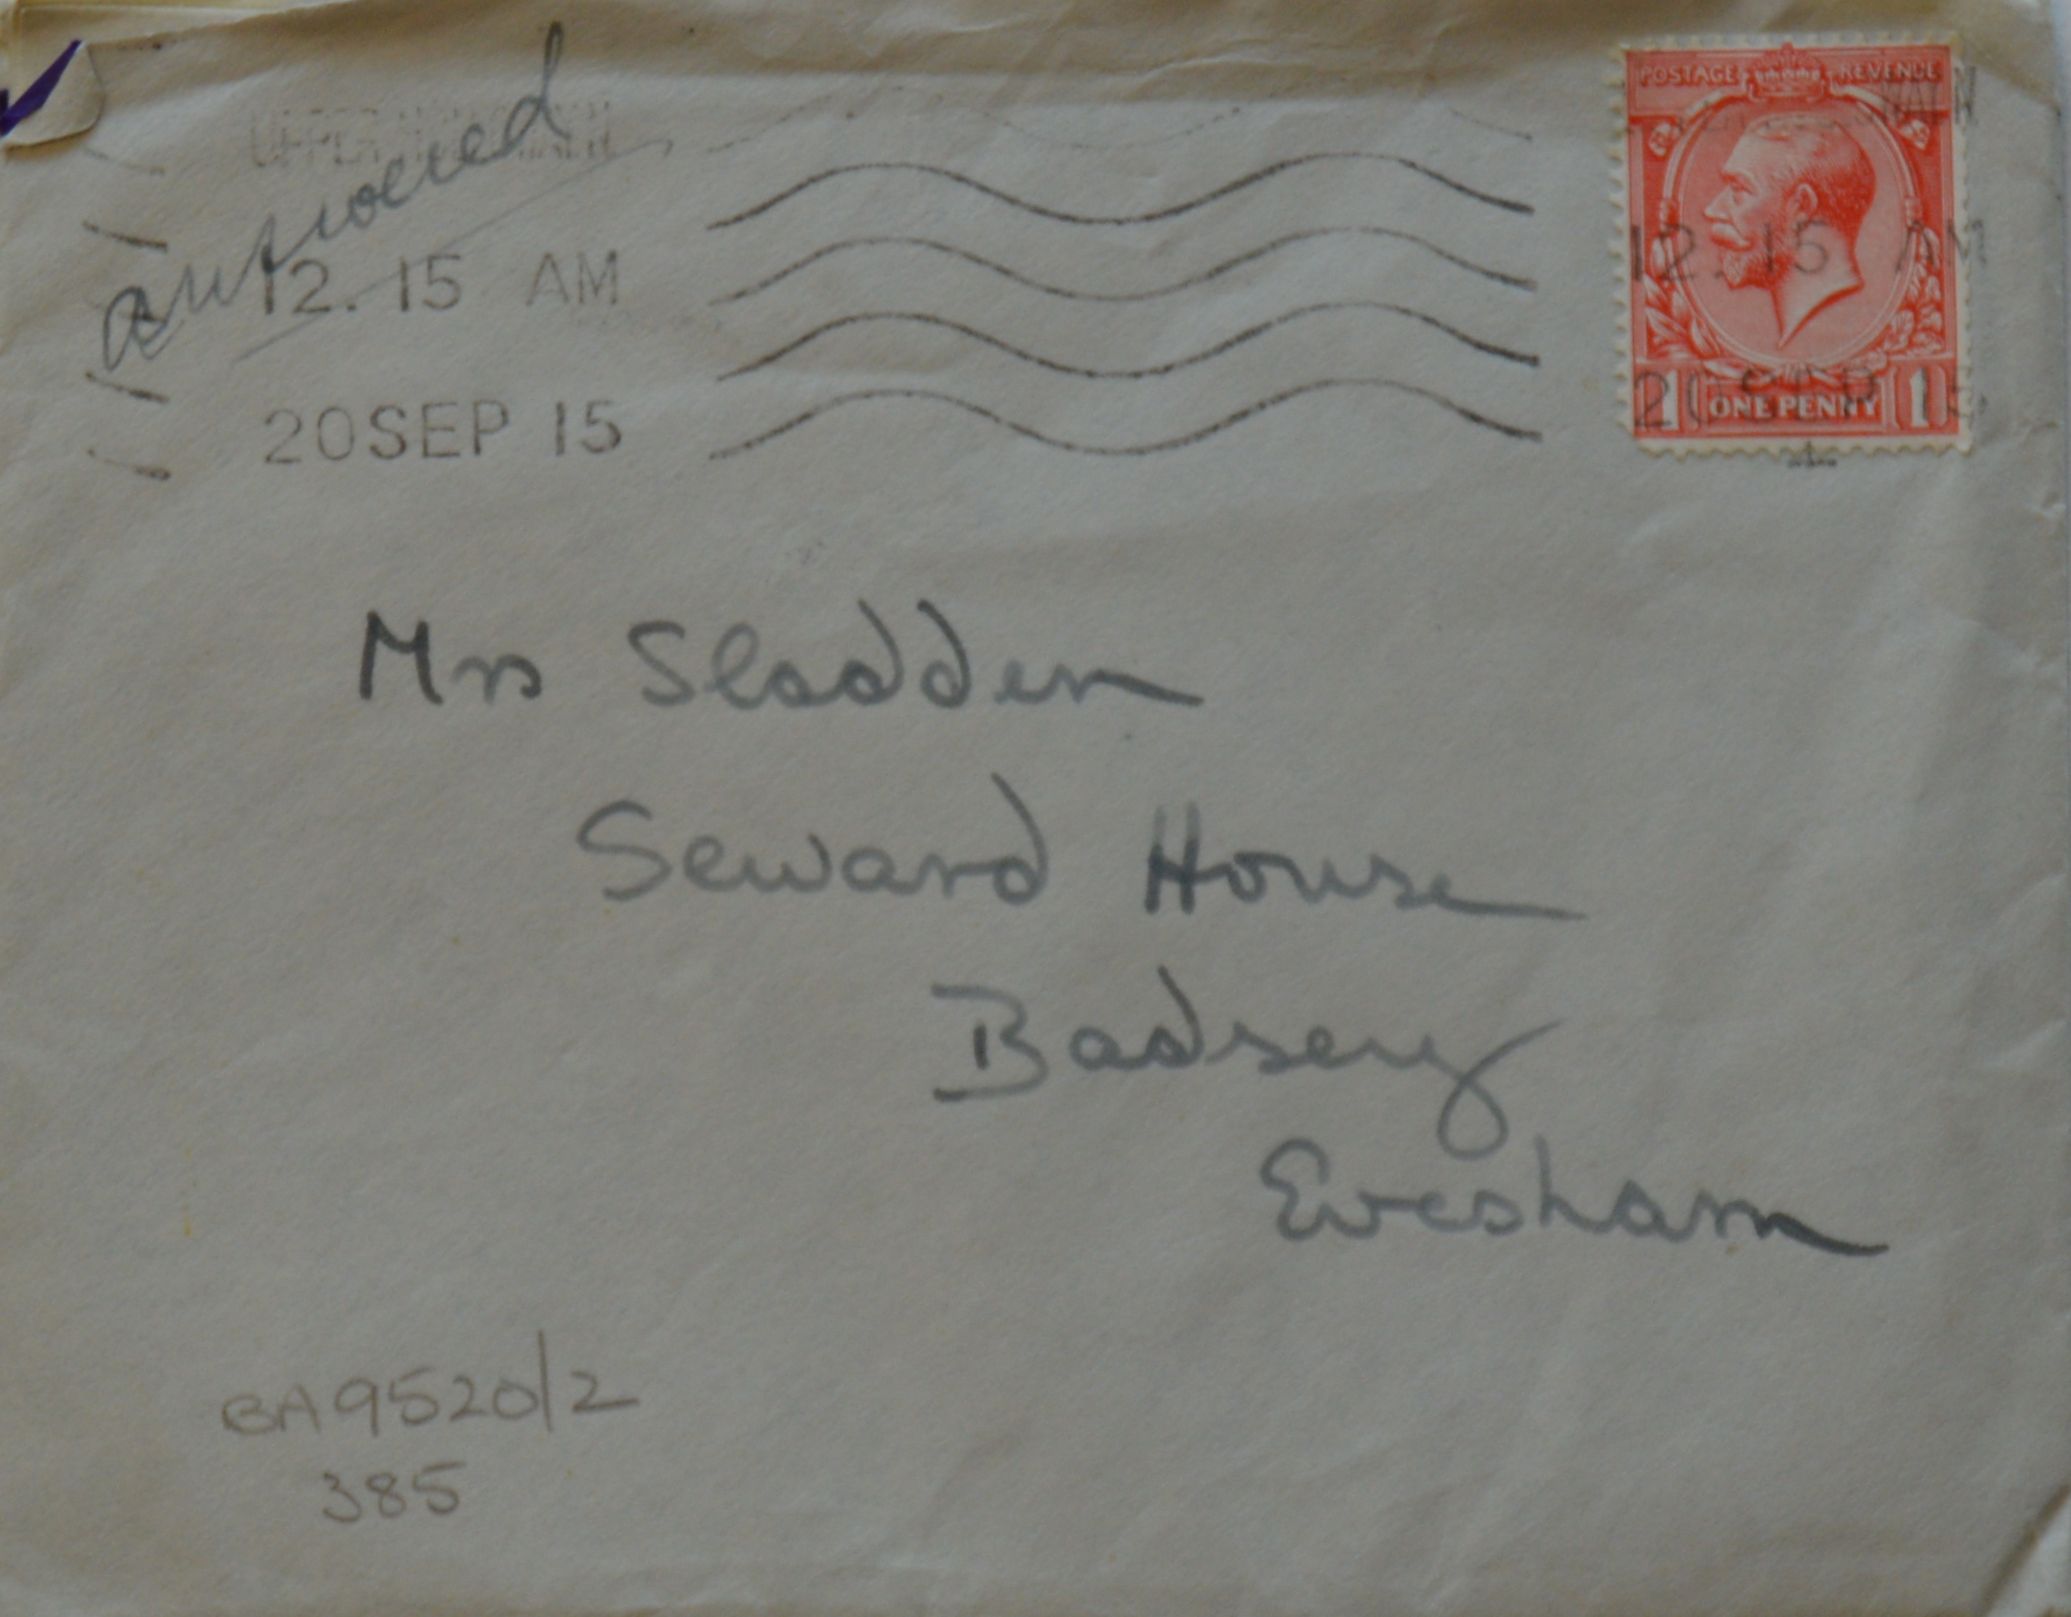 answered
UPPER
12. 15 AM
20 SEP 15
POSTAGE REVENUE
12. 15 AM
20 SEP 15
1 ONE PENNY 1
Mrs Sladden
Seward House
Badsey
Evesham
BA9520/2
385